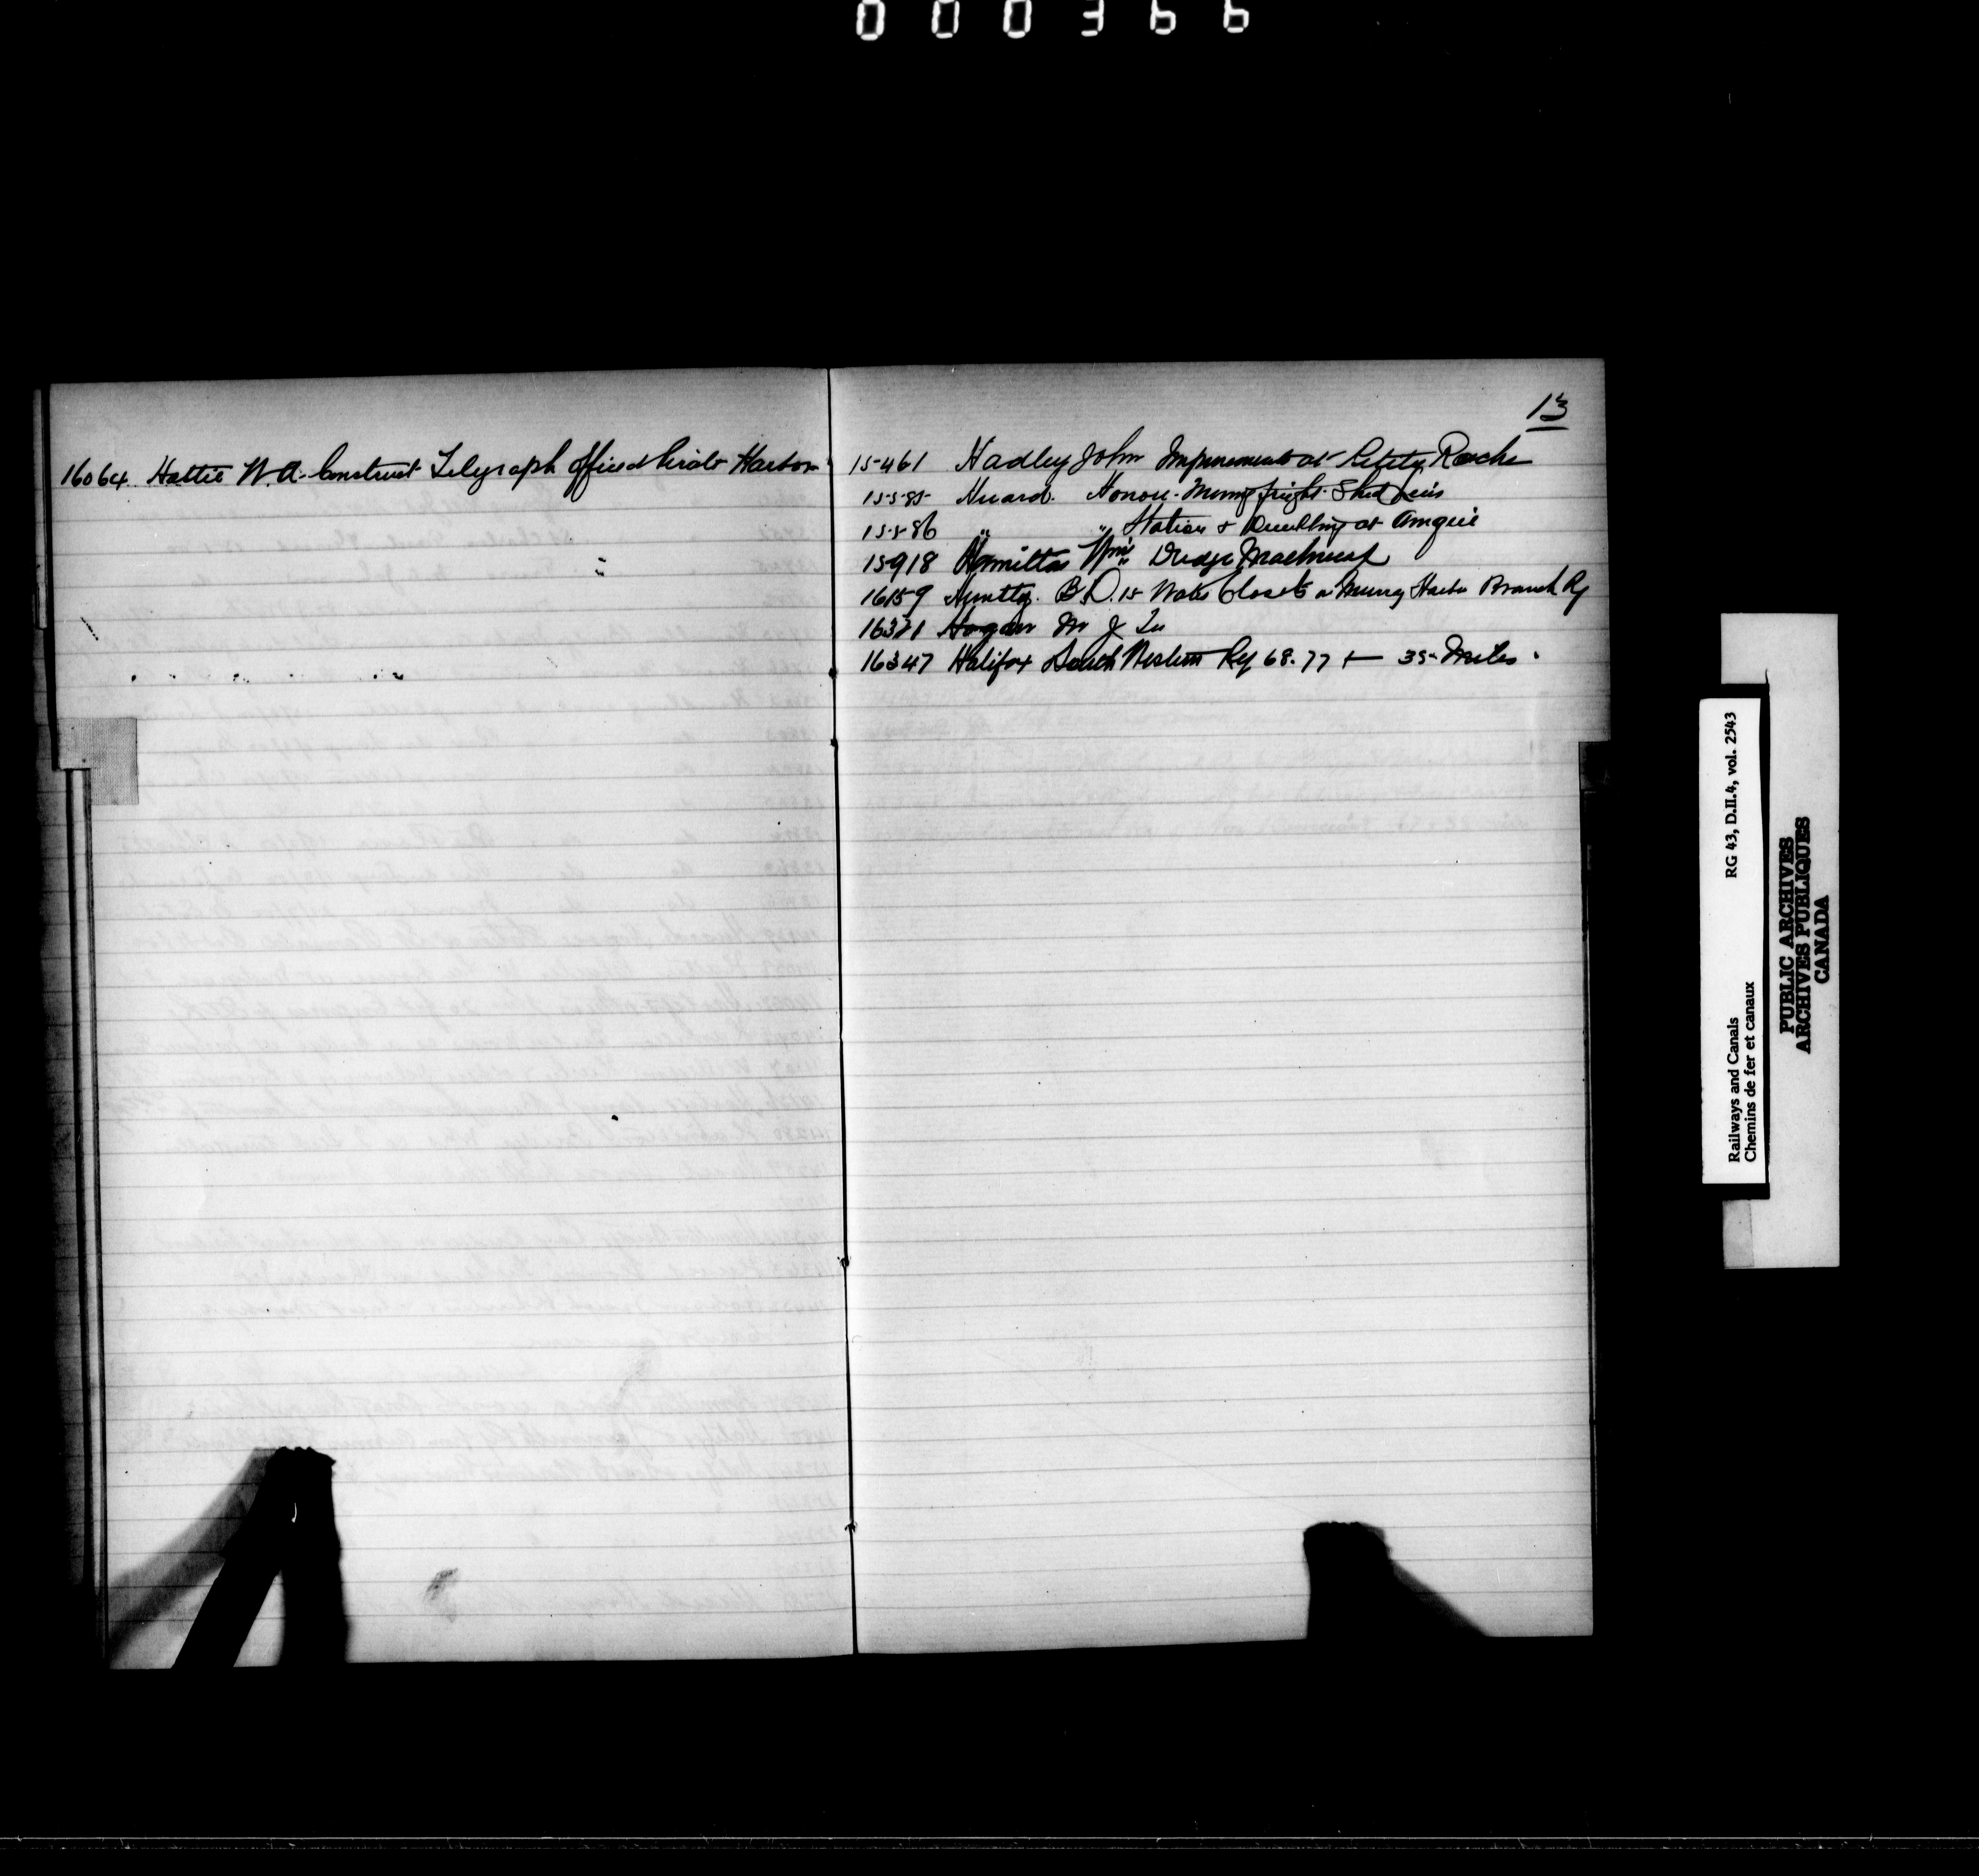 000366
16064 Hattie W. A. Construct Telegraph office at Pirate Harbor
13
15461 Hadley John Improvements at Petite Roche
15585 Huard Honore. freight Shed Levis
15586 " " Station & Dwelling at Amqui
15918 Hamilton Wm Dredge
16159 B. D. 15 Water Closets on Murray Harbor Branch Ry
16321 Hogan M J
16347 Halifax South Western Ry 68.77 + 35 Miles.
RG 43, D.II.4, vol. 2543
Railways and Canals
Chemins de fer et canaux
PUBLIC ARCHIVES
ARCHIVES PUBLIQUES
CANADA